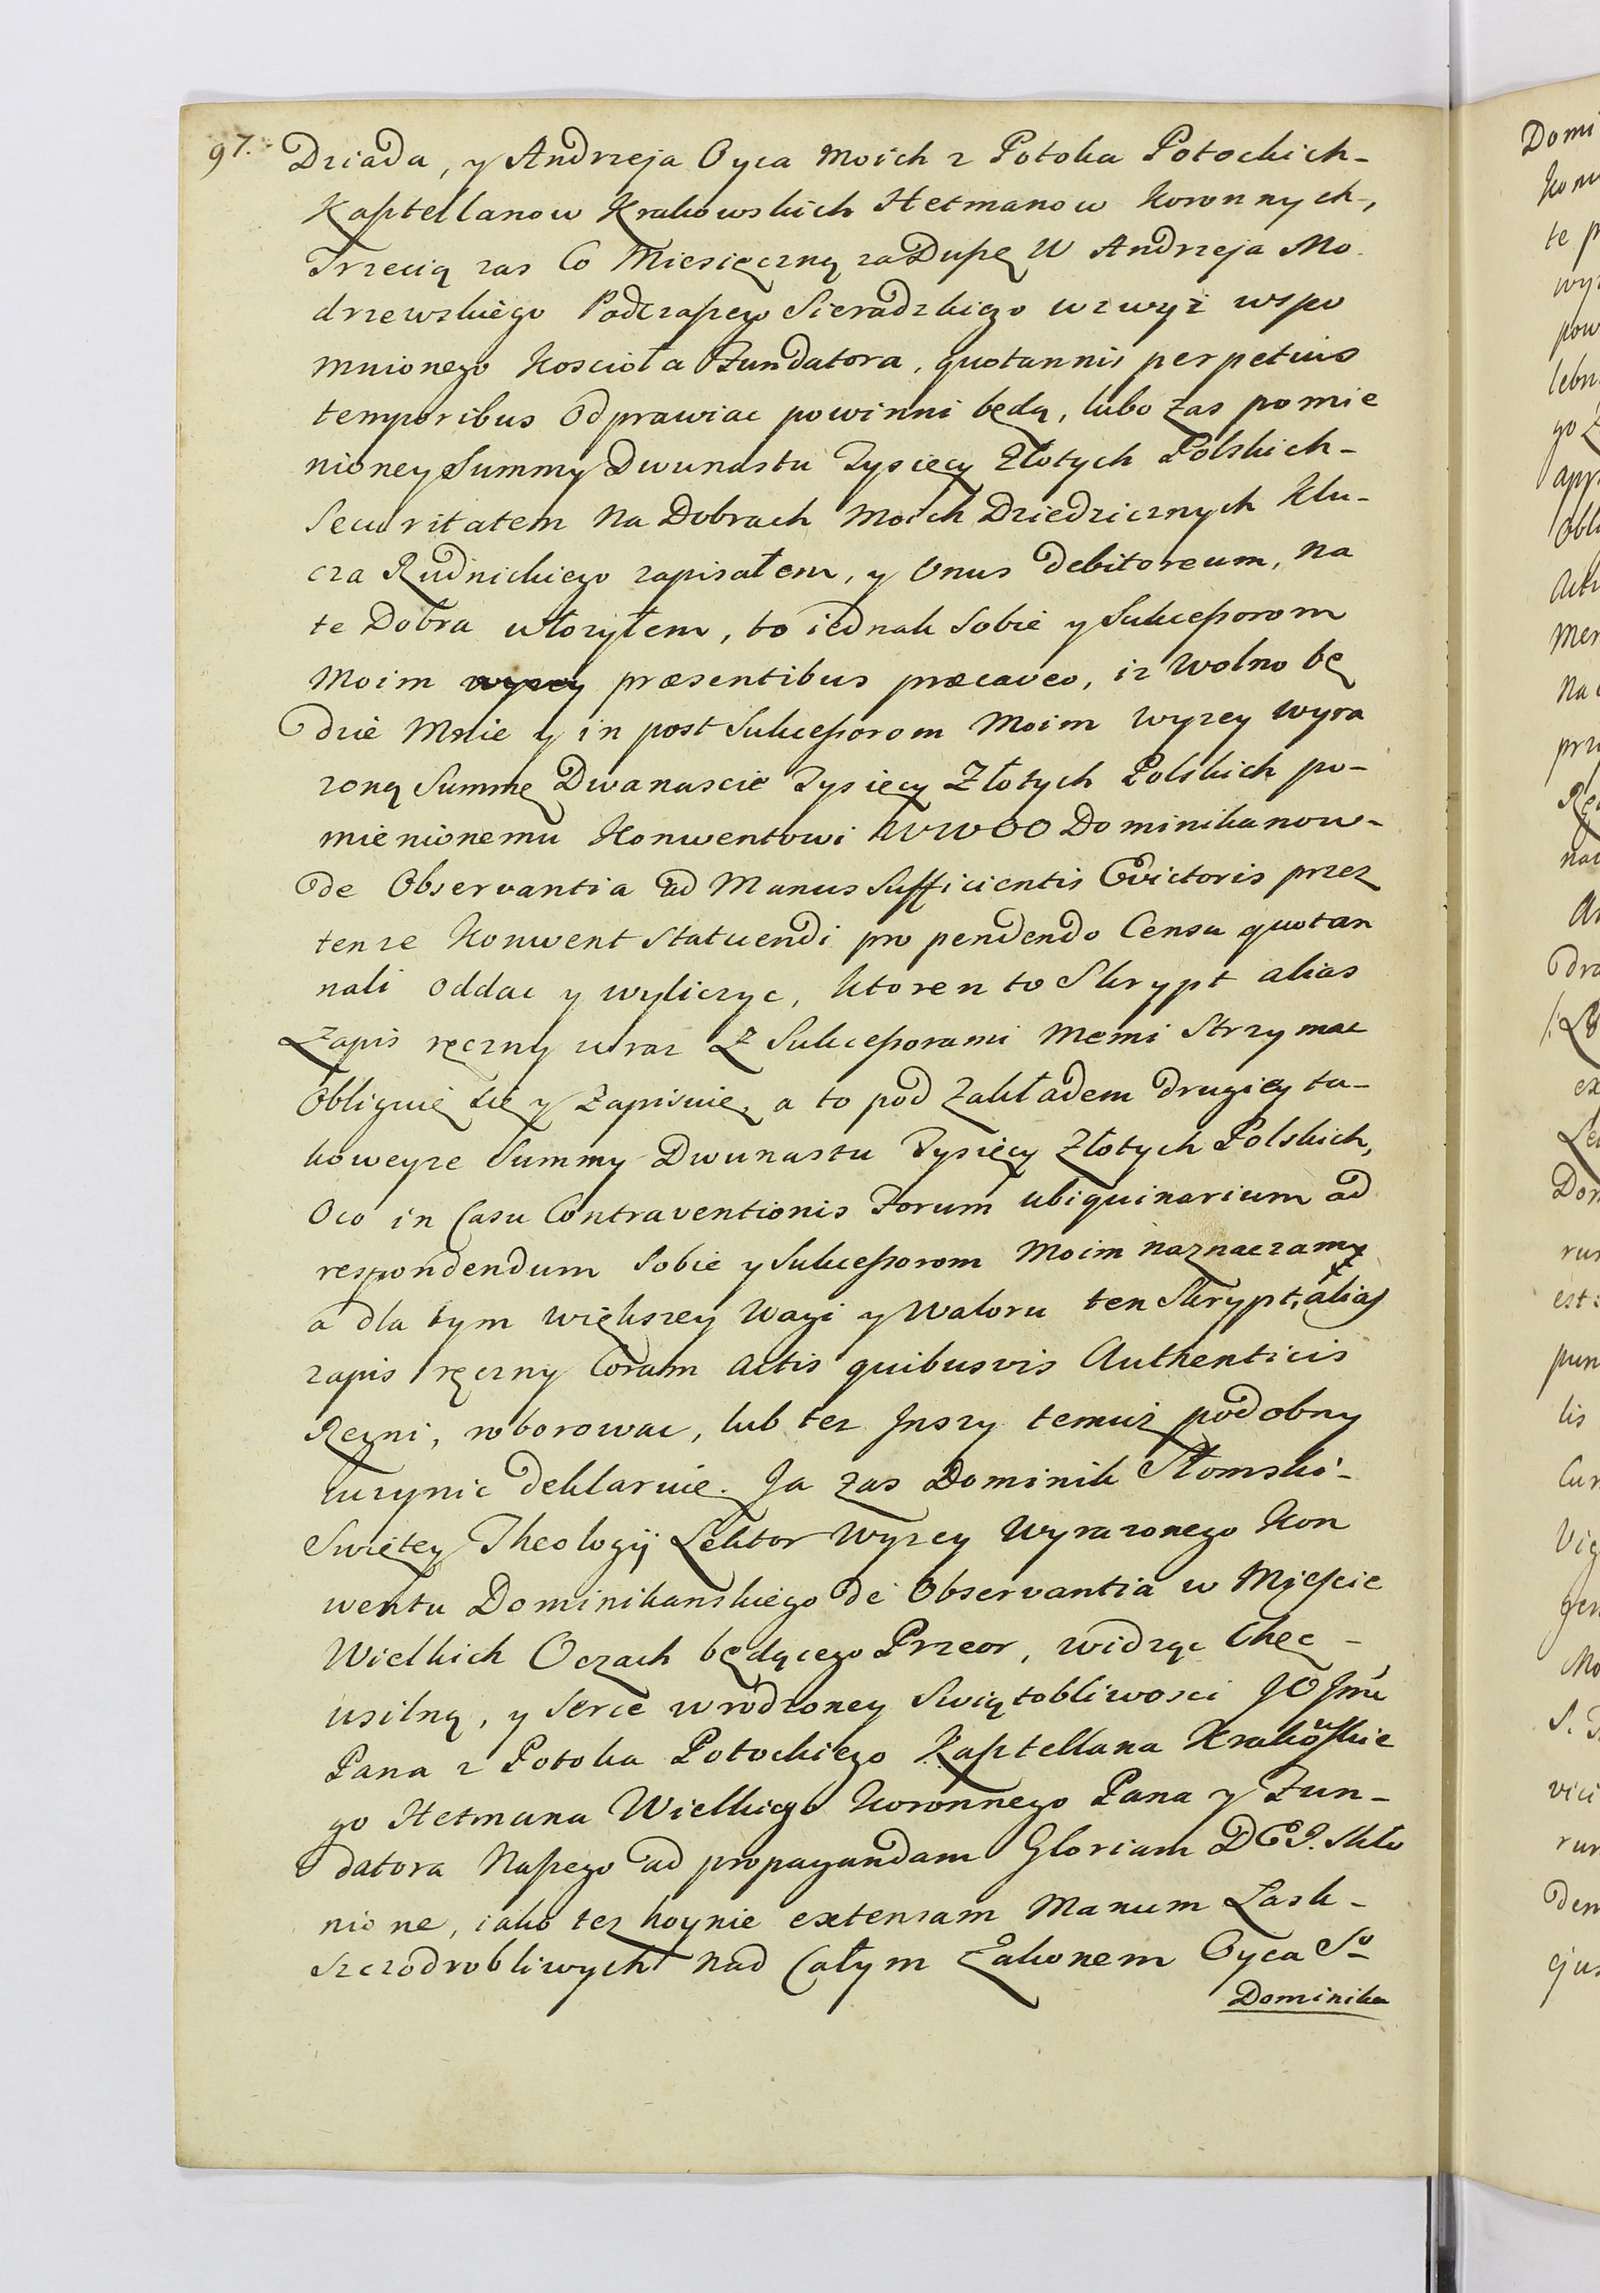 97. Dziada, y Andrzeja Oyca Moich z Potoka Potockich-
Kasztellanow Krakowskich Hetmanow Koronnych-,
Trzecią zas Co Miesięczną za Duszę W Andrzeja Mo
drzewskiego Podczaszego Sieradzkiego wzwyż wspo
mnionego Koscioła Fundatora, quotannis perpetuis
temporibus Odprawiac powinni będą, lubo zas pomie
nioney Summy Dwunastu Tysięcy Złotych Polskich-
Securitatem na Dobrach Moich Dziedzicznych Klu-
cza Rudnickiego zapisałem, y Onus debitoreum, na
te Dobra włozyłem, to iednak Sobie y Sukcessorom
Moim wyzey præsentibus præcaveo, iz Wolno bę
dzie Mnie y in post Sukcessorom Moim wyzey wyra
zoną Summę Dwanascie Tysięcy Złotych Polskich po-
mienionemu Konwentowi WWOO Dominikanow-
de Observantia ad Manus Sufficientis Evictoris przez
tenze Konwent Statuendi pro pendendo Censu quotan
nali oddac y wyliczyc, ktoren to Skrypt alias
Zapis ręczny wraz Z Sukcessorami Memi Strzymac
Obliguię się y Zapisuię, a to pod Zakładem drugiey ta-
koweyze Summy Dwunastu Tysięcy Złotych Polskich,
Oco in Casu Contraventionis Forum ubiquinarium ad
respondendum Sobie y Sukcessorom Moim naznaczamy
a dla tym większey Wagi y Waloru ten Skrypt, alias
zapis ręczny Coram Actis quibusvis Authenticis
Regni, roborowac, lub tez Jnszy temuż podobny
uczynic deklaruie. Ja zas Dominik Słomski-
Swiętey Theologij Lektor Wyzey Wyrazonego Kon
wentu Dominikanskiego de Observantia w Miescie
Wielkich Oczach będącego Przeor, widząc Chęc-
usilną, y Serce wrodzoney Swiątobliwosci JO Jmci
Pana z Potoka Potockiego Kasztellana Krakowskie
go Hetmana Wielkiego Koronnego Pana y Fun-
datora Naszego ad propagandam Gloriam DEI. Skło
nione, iako tez hoynie extensam Manum Łask-
szczodrobliwych nad Całym Zakonem Oyca So
Dominika